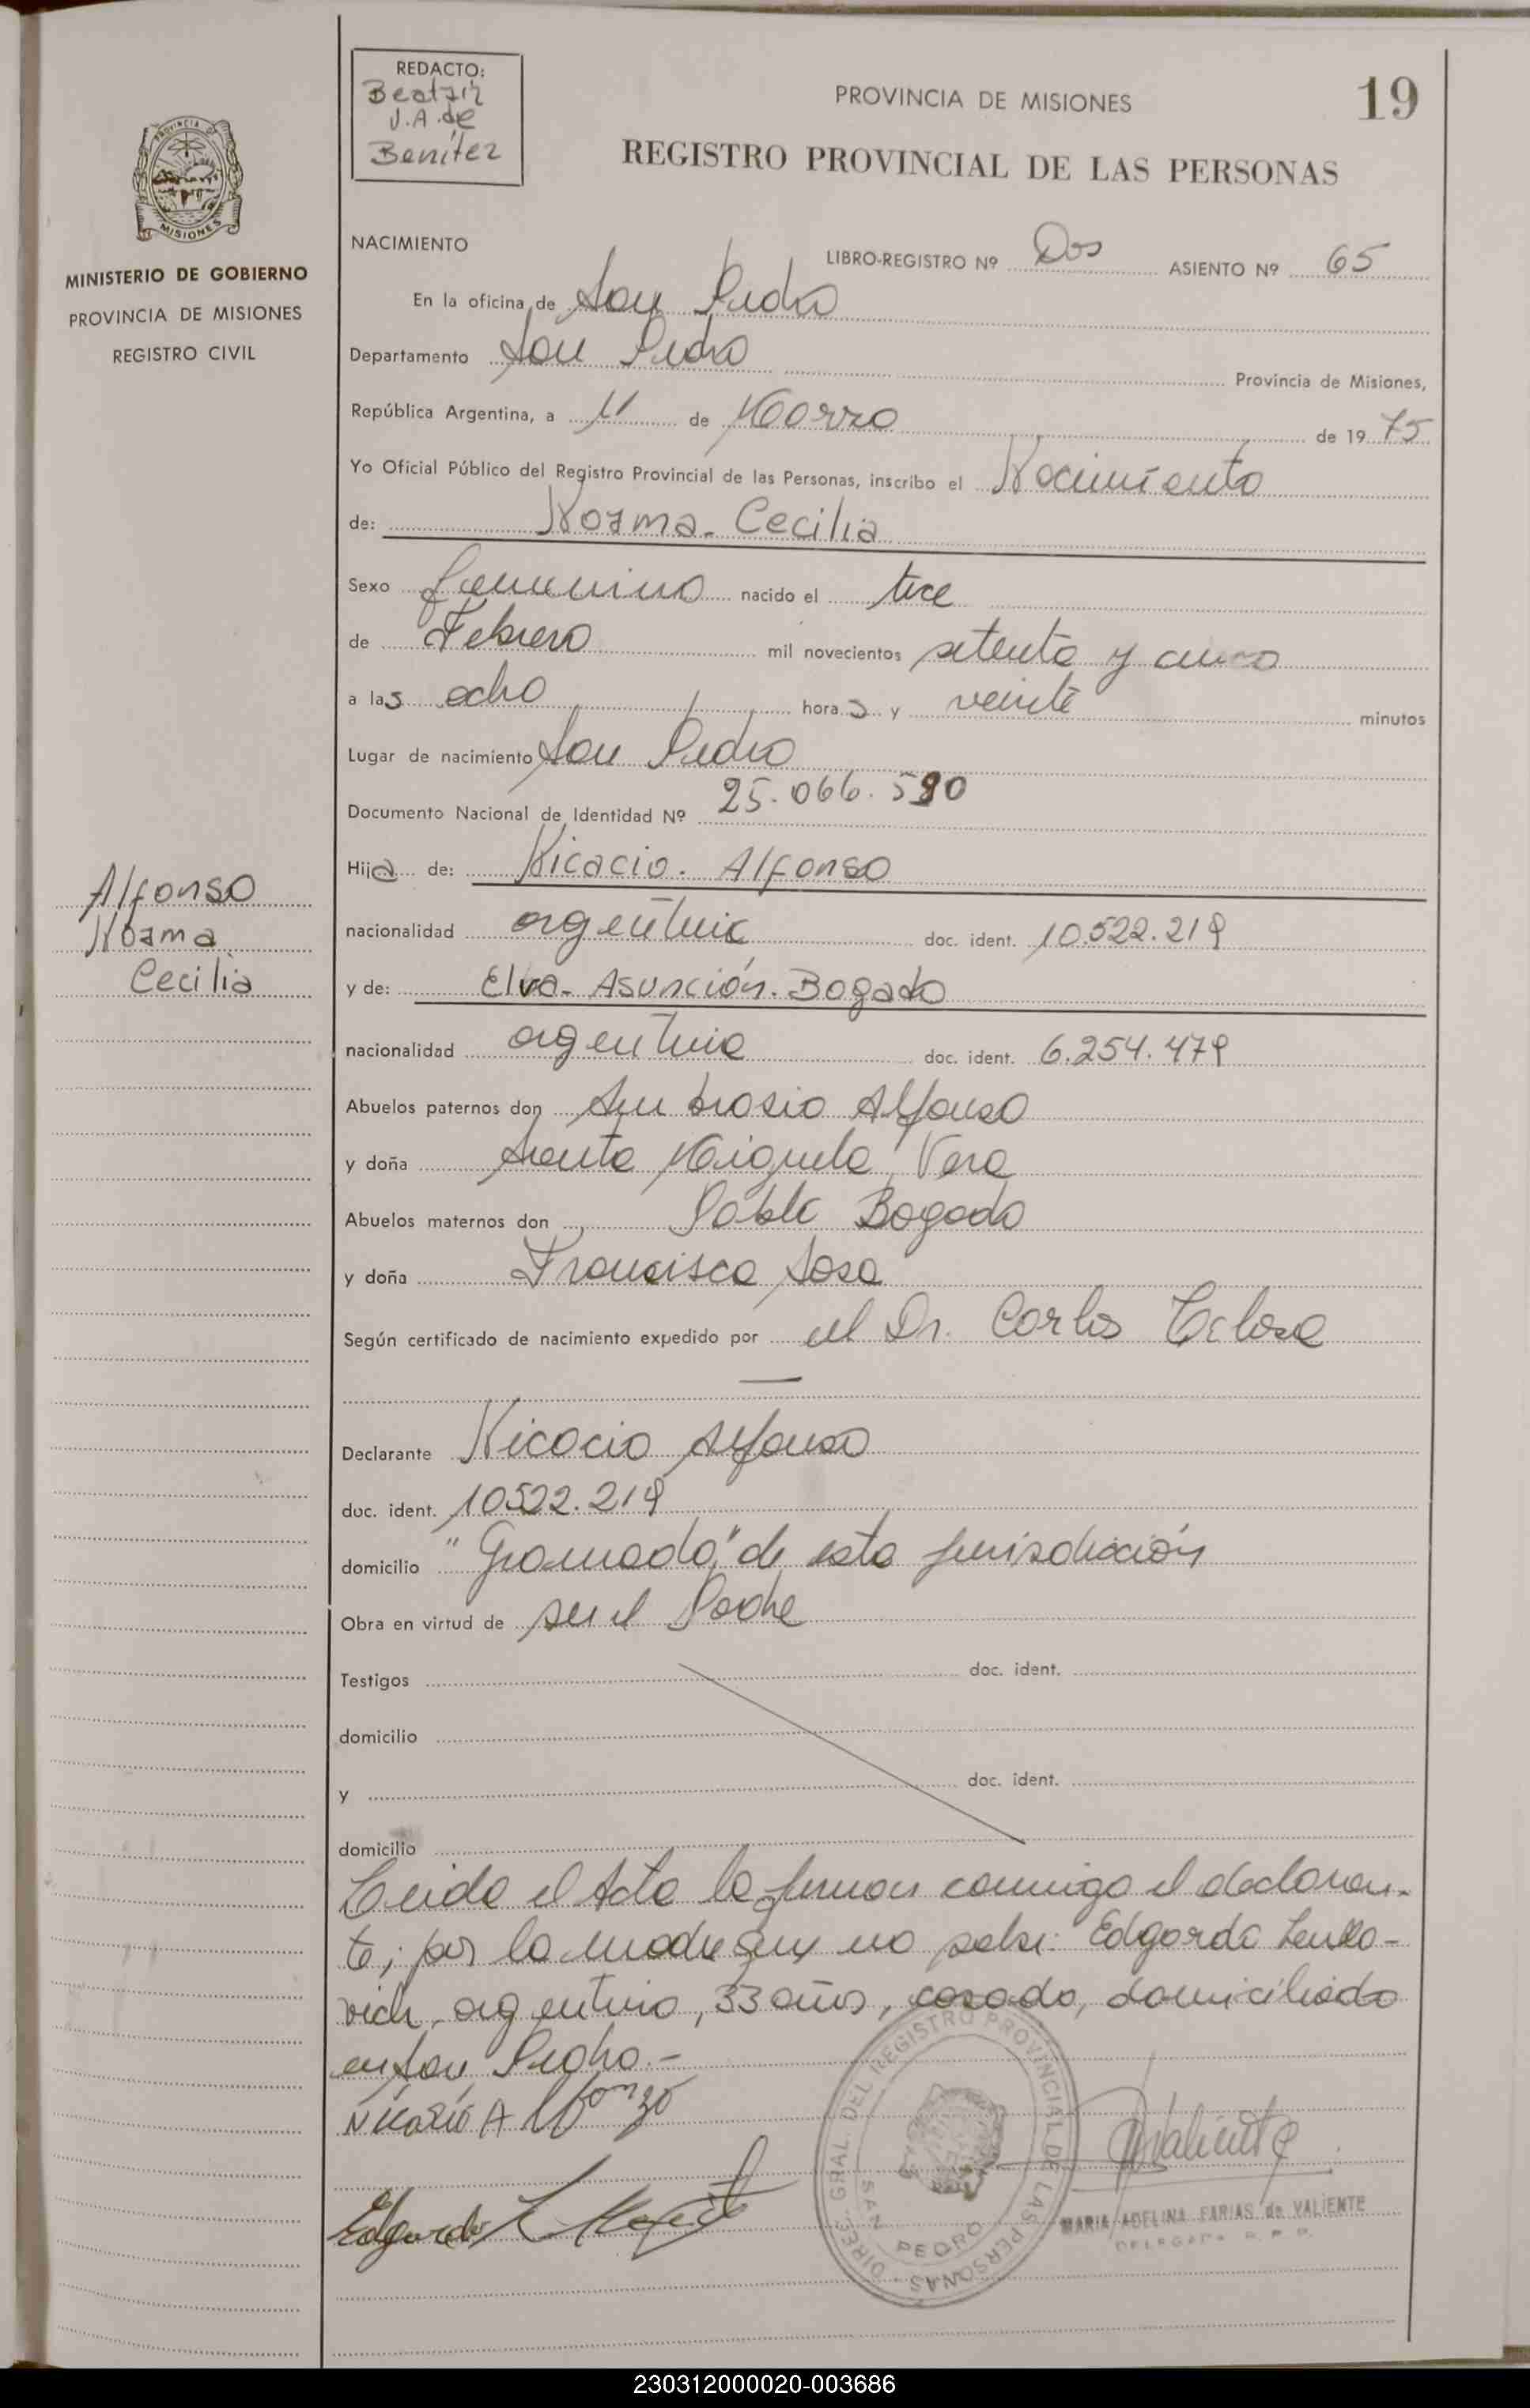 REDACTO:
Beatriz
V.A. de
Benítez
PROVINCIA DE MISIONES
19
REGISTRO PROVINCIAL DE LAS PERSONAS
PROVINCIA DE
MISIONES
MINISTERIO DE GOBIERNO
PROVINCIA DE MISIONES
REGISTRO CIVIL
NACIMIENTO
LIBRO-REGISTRO Nº Dos ASIENTO Nº 65
En la oficina de San Pedro
Departamento San Pedro Provincia de Misiones,
República Argentina, a 11 de Marzo de 1975
Yo Oficial Público del Registro Provincial de las Personas, inscribo el Nacimiento
de: Norma - Cecilia
Sexo femenino nacido el trece
de Febrero mil novecientos setenta y cinco
a las ocho horas y veinte minutos
Lugar de nacimiento San Pedro
Documento Nacional de Identidad Nº 25.066.590
Hija de: Nicacio - Alfonso
nacionalidad argentina doc. ident. 10.522.219
y de: Elva - Asunción - Bogado
nacionalidad argentina doc. ident. 6.254.479
Abuelos paternos don Ambrosio Alfonso
y doña Santa Miguela Vera
Abuelos maternos don Pablo Bogado
y doña Francisca Sosa
Según certificado de nacimiento expedido por el Dr. Carlos
Alfonso
Norma
Cecilia
Declarante Nicacio Alfonso
doc. ident. 10522.219
domicilio "Gramado" de esta jurisdicción
Obra en virtud de ser el Padre
Testigos doc. ident.
domicilio
y doc. ident.
domicilio
Leida el Acta la firman conmigo el declaran-
te; por la madre que no sabe: Edgardo
argentino, 33 años, casado, domiciliado
en San Pedro.-
Nicasio Alfonzo
Edgardo
DIREC. GRAL. DEL REGISTRO PROVINCIAL DE LAS PERSONAS
SAN PEDRO
Valiente
MARIA ADELINA FARIAS de VALIENTE
DELEGADA R. P. P.
230312000020-003686